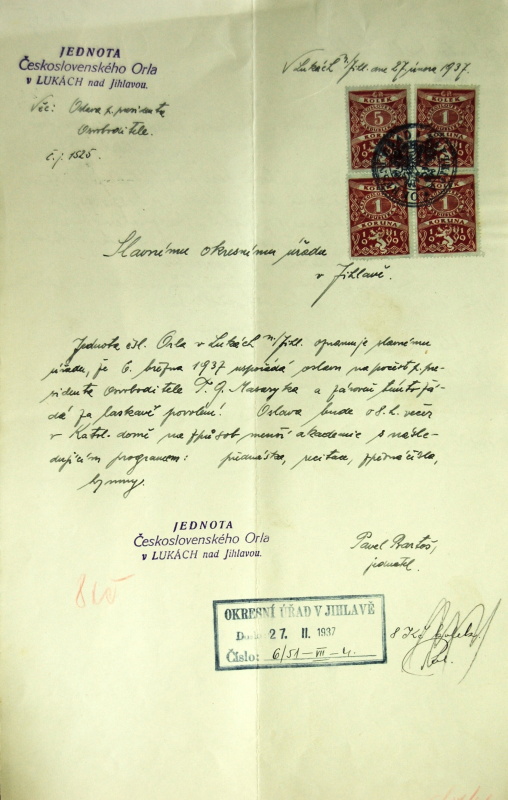 JEDNOTA
Československého Orla
v LUKÁCH nad Jihlavou.
V Lukách n/Jihl. dne 27. února 1937.
Věc: Oslava p. presidenta
Osvoboditele.
č.j. 1525.
KOLEK
5
KORUN
KOLEK
1
KORUNA
KOLEK
1
KORUNA
KOLEK
1
KORUNA
Slavnému okresnímu úřadu
v Jihlavě.
Jednota čsl. Orla v Lukách n/Jihl. oznamuje slavnému
úřadu, že 6. března 1937 uspořádá oslavu na počest p. pre-
sidenta Osvoboditele T. G. Masaryka a zároveň tímto žá-
dá za laskavé povolení. Oslava bude o 8. h. večer
v Katol. domě na způsob menší akademie s násle-
dujícím programem: přednáška, recitace, zpěvní čísla,
hymny.
JEDNOTA
Československého Orla
v LUKÁCH nad Jihlavou.
Pavel Bartoš,
jednatel.
8 Kč
OKRESNÍ ÚŘAD V JIHLAVĚ
Došlo 27. II. 1937
Číslo: 6/51-VII-4.
8 Kč